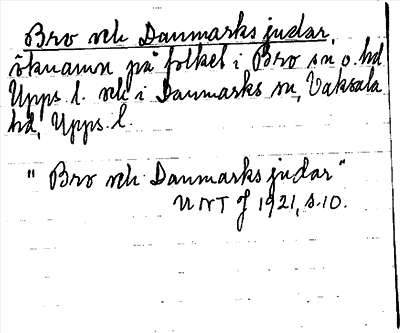 Bro och Danmarks judar,
öknamn på folket i Bro sn o. hd
Upps. l. och i Danmarks sn, Vaksala
hd, Upps. l.
"Bro och Danmarks judar"
UNT J 1921, s. 10.